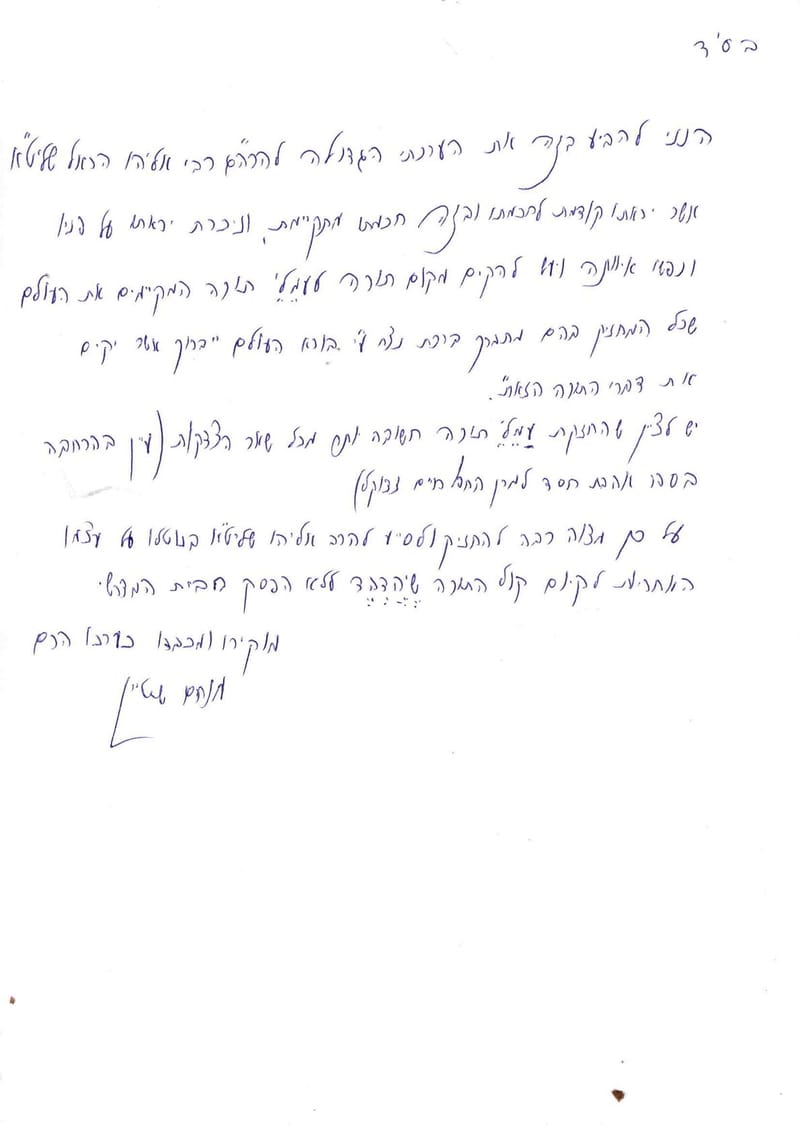 בס'ד
הנני להביע בזה את הערכתי הגדולה להרה"ג רבי אליהו הראל שליט"א
אשר יראתו קודמת לחכמתו ובזה חכמתו מתקיימת, וניכרת יראתו על פניו
ונפשו איוותה ויעש להקים מקום תורה לעמלי תורה המקיימים את העולם
שכל המחזיק בהם מתברך ברכת נצח ע"י בורא העולם "ברוך אשר יקים
את דברי התורה הזאת".
יש לציין שהחזקת עמלי תורה חשובה יותר מכל שאר הצדקות (עיין בהרחבה
בספרו אהבת חסד למרן החפץ חיים זצוקל)
על כן מצוה רבה להחזיק ולסייע להרב אליהו שליט"א בנוטלו על עצמו
האחריות לקיום קול התורה שיהדהד ללא הפסק מבית המדרש
מוקירו ומכבדו כערכו הרם
מנחם שטיין